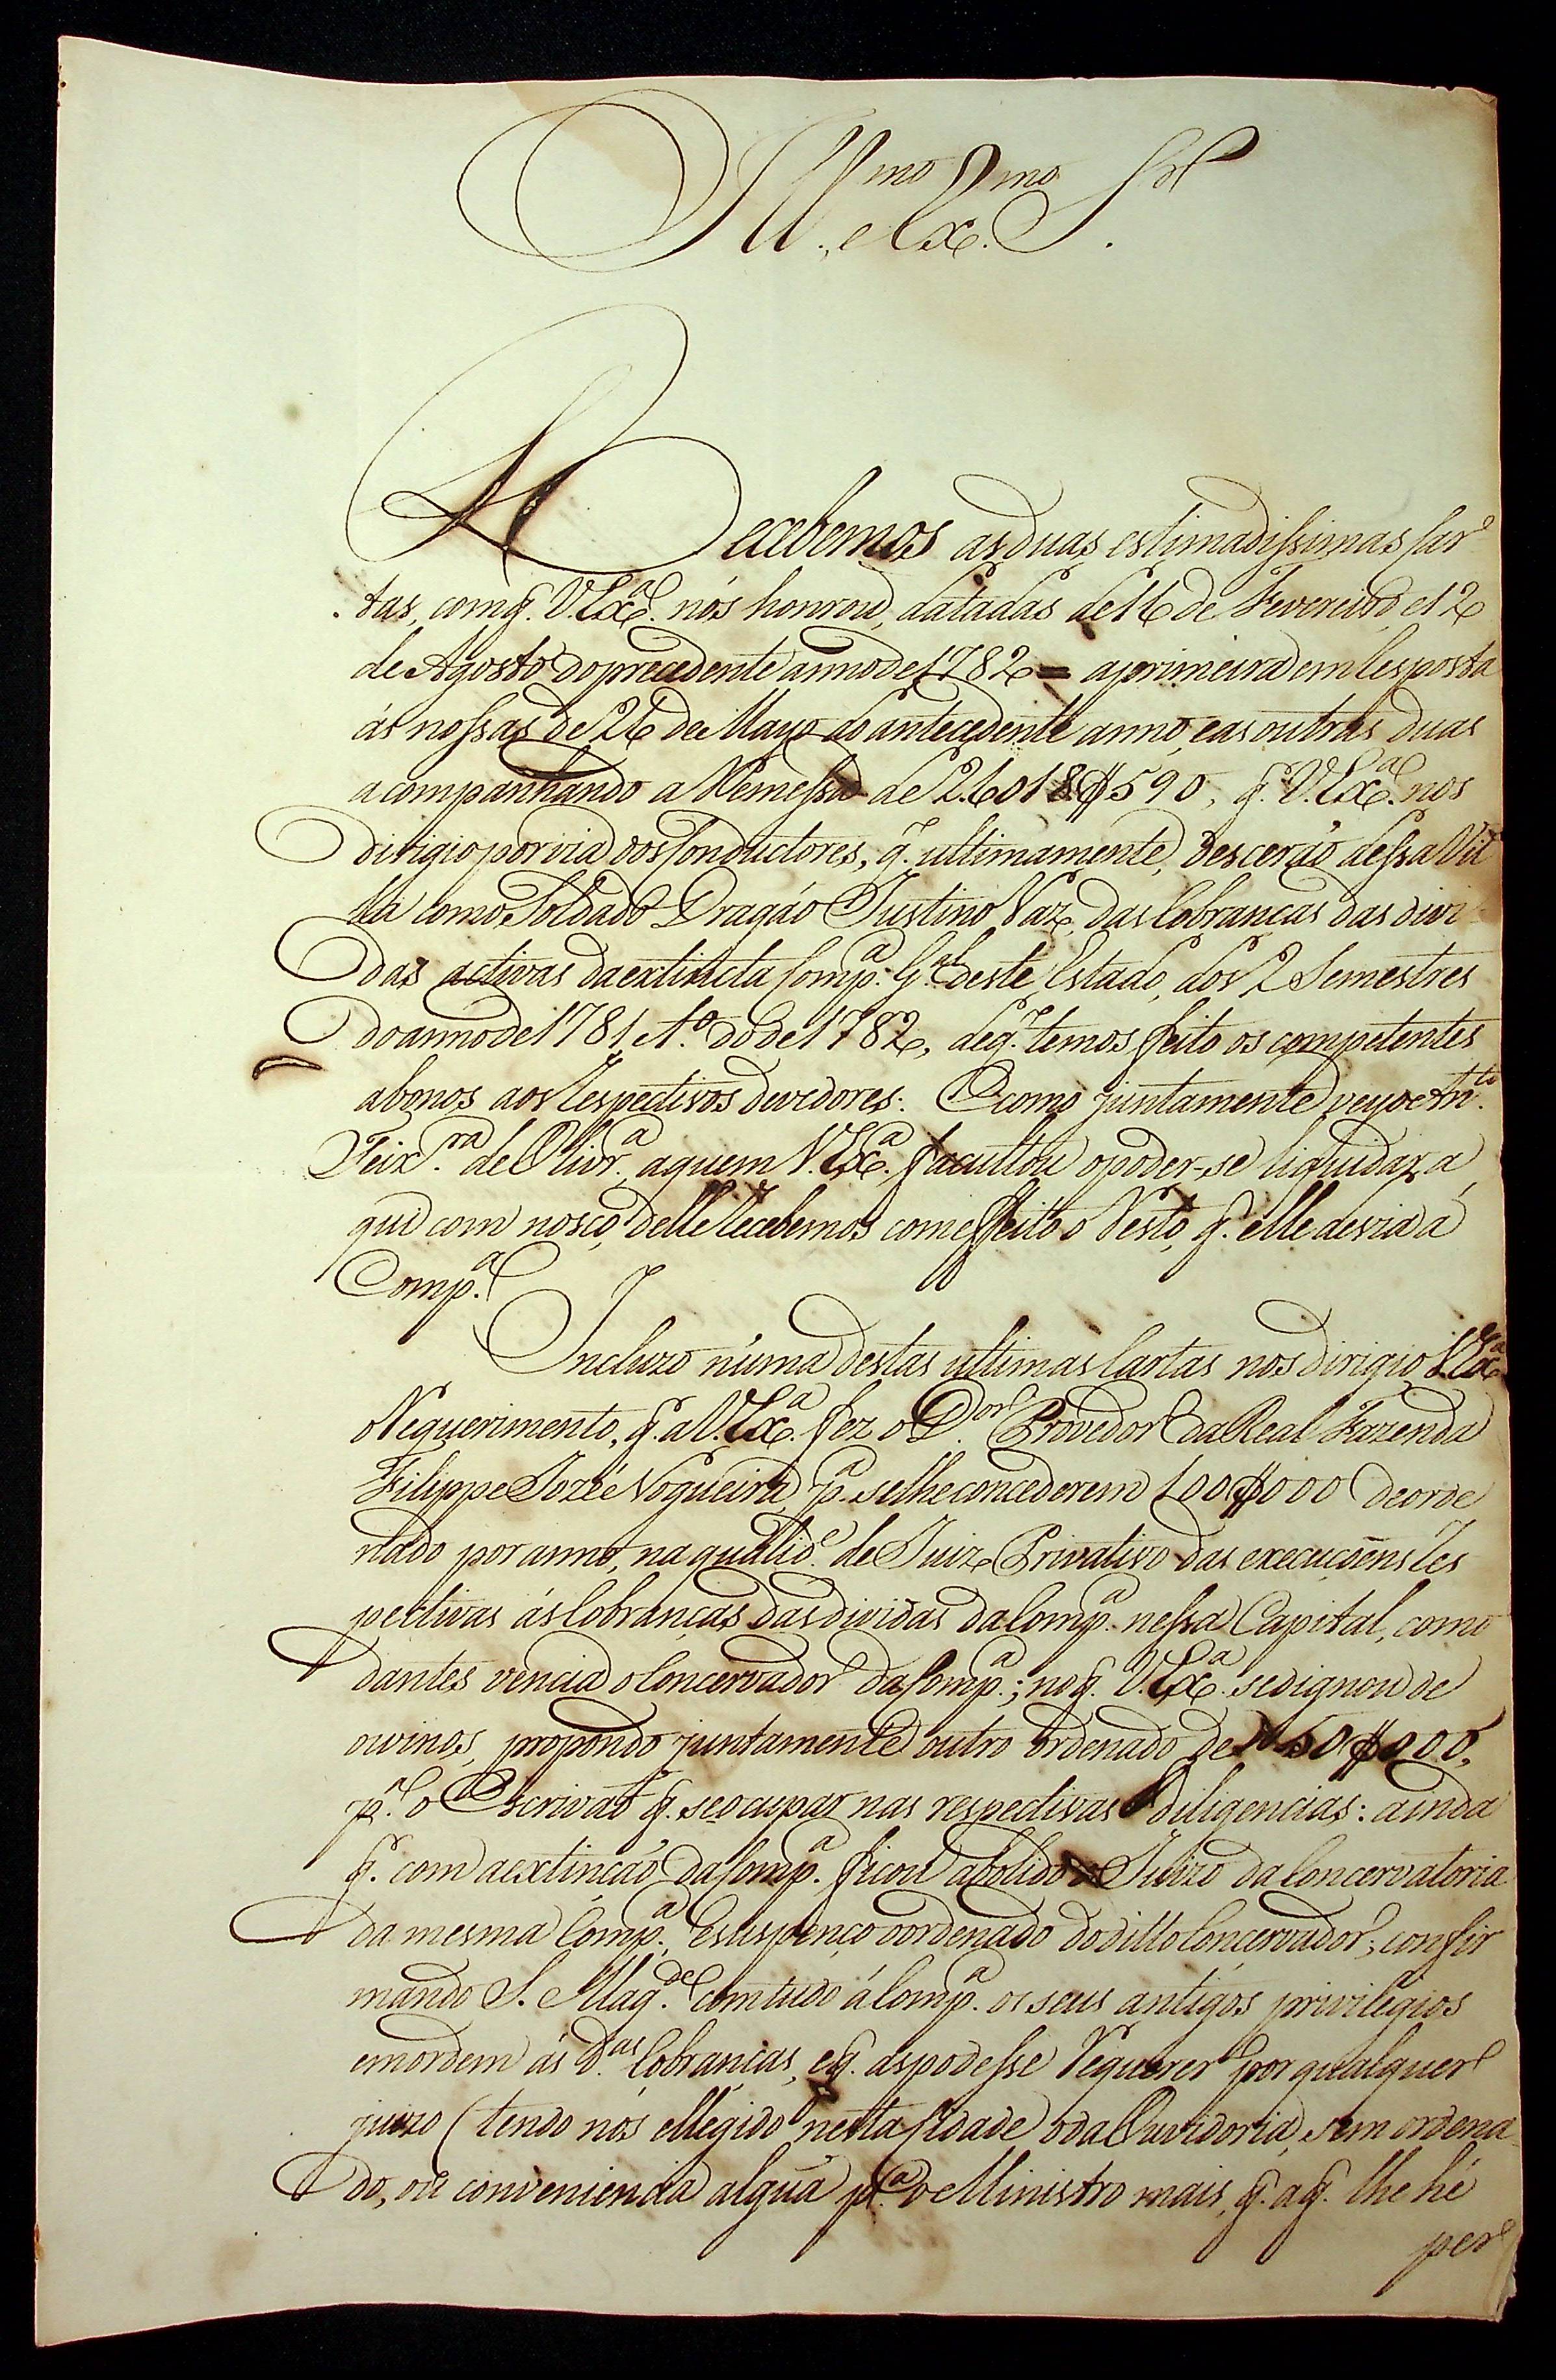 Ill.mo e Ex.mo Snr.
Recebemos as duas estimadissimas Car
tas, com q. V. Ex.a nos honrou, datadas de 16 de Fevereiro, e 12
de Agosto do precedente anno de 1782 = a primeira em resposta
ás nossas de 26 de Mayo do antecedente anno, e as outras duas
acompanhando a Remessa de 2.601$590, q. V. Ex.a nos
dirigio por via dos Conductores, q. ultimamente descerão dessa Vil
la com o Soldado Dragão Justino Vaz, das Cobrancas das divi
das activas da extincta Comp.a G.al deste Estado, dos 2 Semestres
do anno de 1781 e 1.o do de 1782, de q. temos feito os competentes
abonos aos respectivos devedores. E como juntamente veyo Ant.to
Teix.ra de Olivr.a, a quem V. Ex.a facultou o poder-se liquidar a
qui com nosco, delle recebemos com effeito o Resto, q. elle devia á
Comp.a
Incluzo n'uma destas ultimas Cartas nos dirigio V. Ex.a
o Requerimento, q. a V. Ex.a fez o D.or Provedor da Real Fazenda
Filippe Jozé Nogueira, p.a se lhe concederem 100$000 de orde
nado por anno, na qualid.e de Juiz Privativo das execuçoẽns res
pectivas ás Cobranças das dividas da Comp.a nessa Capital, como
dantes vencia o Concervador da Comp.a; no q. V. Ex.a se dignou de
ouvirnos, propondo juntamente outro ordenado de 50$000,
p.a o Escrivaõ q. se ocupar nas respectivas diligencias: ainda
q. com a extinção da Comp.a ficou abolido o Juizo da Concervatoria
da mesma Comp.a, e suspenço o ordenado do ditto Concervador; confir
mando S. Mag.de comtudo á Comp.a os seus antigos privilegios
em ordem ás d.as Cobrancas, e q. as podesse Requerer por qualquer
juizo (tendo nós ellegido nesta Cidade o da Ouvidoria, sem ordena
do, ou conveniencia algũa p.a o Ministro mais, q. a q. lhe hé
per